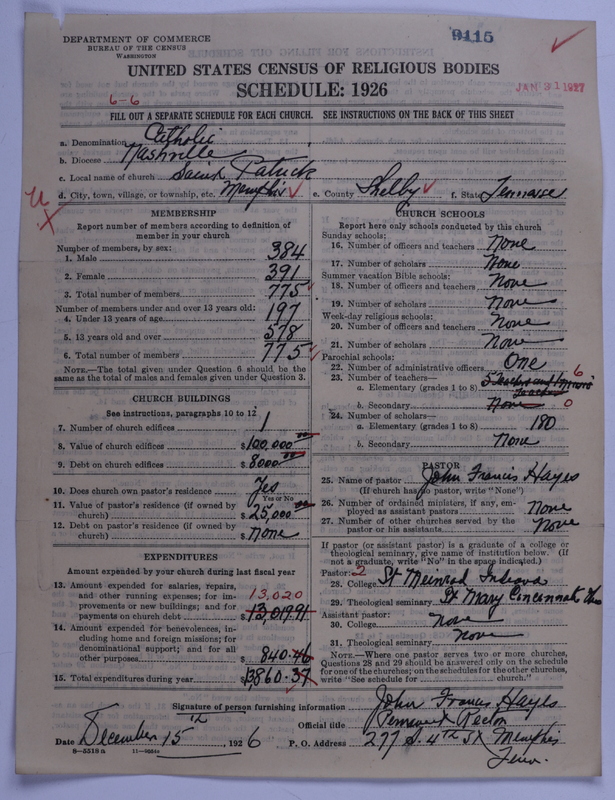 DEPARTMENT OF COMMERCE
BUREAU OF THE CENSUS
WASHINGTON
9115
JAN 31 1927
UNITED STATES CENSUS OF RELIGIOUS BODIES
SCHEDULE: 1926
6-6
FILL OUT A SEPARATE SCHEDULE FOR EACH CHURCH. SEE INSTRUCTIONS ON THE BACK OF THIS SHEET
a. Denomination Catholic
b. Diocese Nashville
c. Local name of church Saint Patrick
d. City, town, village, or township, etc. Memphis e. County Shelby f. State Tennessee
MEMBERSHIP
Report number of members according to definition of
member in your church
Number of members, by sex:
1. Male 384
2. Female 391
3. Total number of members 775
Number of members under and over 13 years old:
4. Under 13 years of age 197
5. 13 years old and over 578
6. Total number of members 775
NOTE.—The total given under Question 6 should be the
same as the total of males and females given under Question 3.
CHURCH BUILDINGS
See instructions, paragraphs 10 to 12
7. Number of church edifices 1
8. Value of church edifices $100,000 00
9. Debt on church edifices $8000 00
10. Does church own pastor's residence Yes
Yes or No
11. Value of pastor's residence (if owned by
church) $25,000 00
12. Debt on pastor's residence (if owned by
church) $None
EXPENDITURES
Amount expended by your church during last fiscal year
13. Amount expended for salaries, repairs,
and other running expenses; for im-
provements or new buildings; and for
payments on church debt 13,020 $13,019.91
14. Amount expended for benevolences, in-
cluding home and foreign missions; for
denominational support; and for all
other purposes $840.46
15. Total expenditures during year $13,860.37
CHURCH SCHOOLS
Report here only schools conducted by this church
Sunday schools:
16. Number of officers and teachers None
17. Number of scholars None
Summer vacation Bible schools:
18. Number of officers and teachers None
19. Number of scholars None
Week-day religious schools:
20. Number of officers and teachers None
21. Number of scholars None
Parochial schools:
22. Number of administrative officers One
23. Number of teachers—
a. Elementary (grades 1 to 8) 5 Teachers and 1 Music Teacher 6
b. Secondary None 0
24. Number of scholars—
a. Elementary (grades 1 to 8) 180
b. Secondary None
PASTOR
25. Name of pastor John Francis Hayes
(If church has no pastor, write "None")
26. Number of ordained ministers, if any, em-
ployed as assistant pastors None
27. Number of other churches served by the
pastor or his assistants None
If pastor (or assistant pastor) is a graduate of a college or
theological seminary, give name of institution below. (If
not a graduate, write "No" in the space indicated.)
Pastor: 2
28. College St Meinrad Indiana
29. Theological seminary St Mary Cincinnati Ohio
Assistant pastor:
30. College None
31. Theological seminary None
NOTE.—Where one pastor serves two or more churches,
Questions 28 and 29 should be answered only on the schedule
for one of the churches; on the schedules for the other churches,
write "See schedule for church."
Signature of person furnishing information John Francis Hayes
Official title Permanent Rector
Date December 15th, 1926 P. O. Address 277 S. 4th St Memphis
Tenn.
8—5518 a